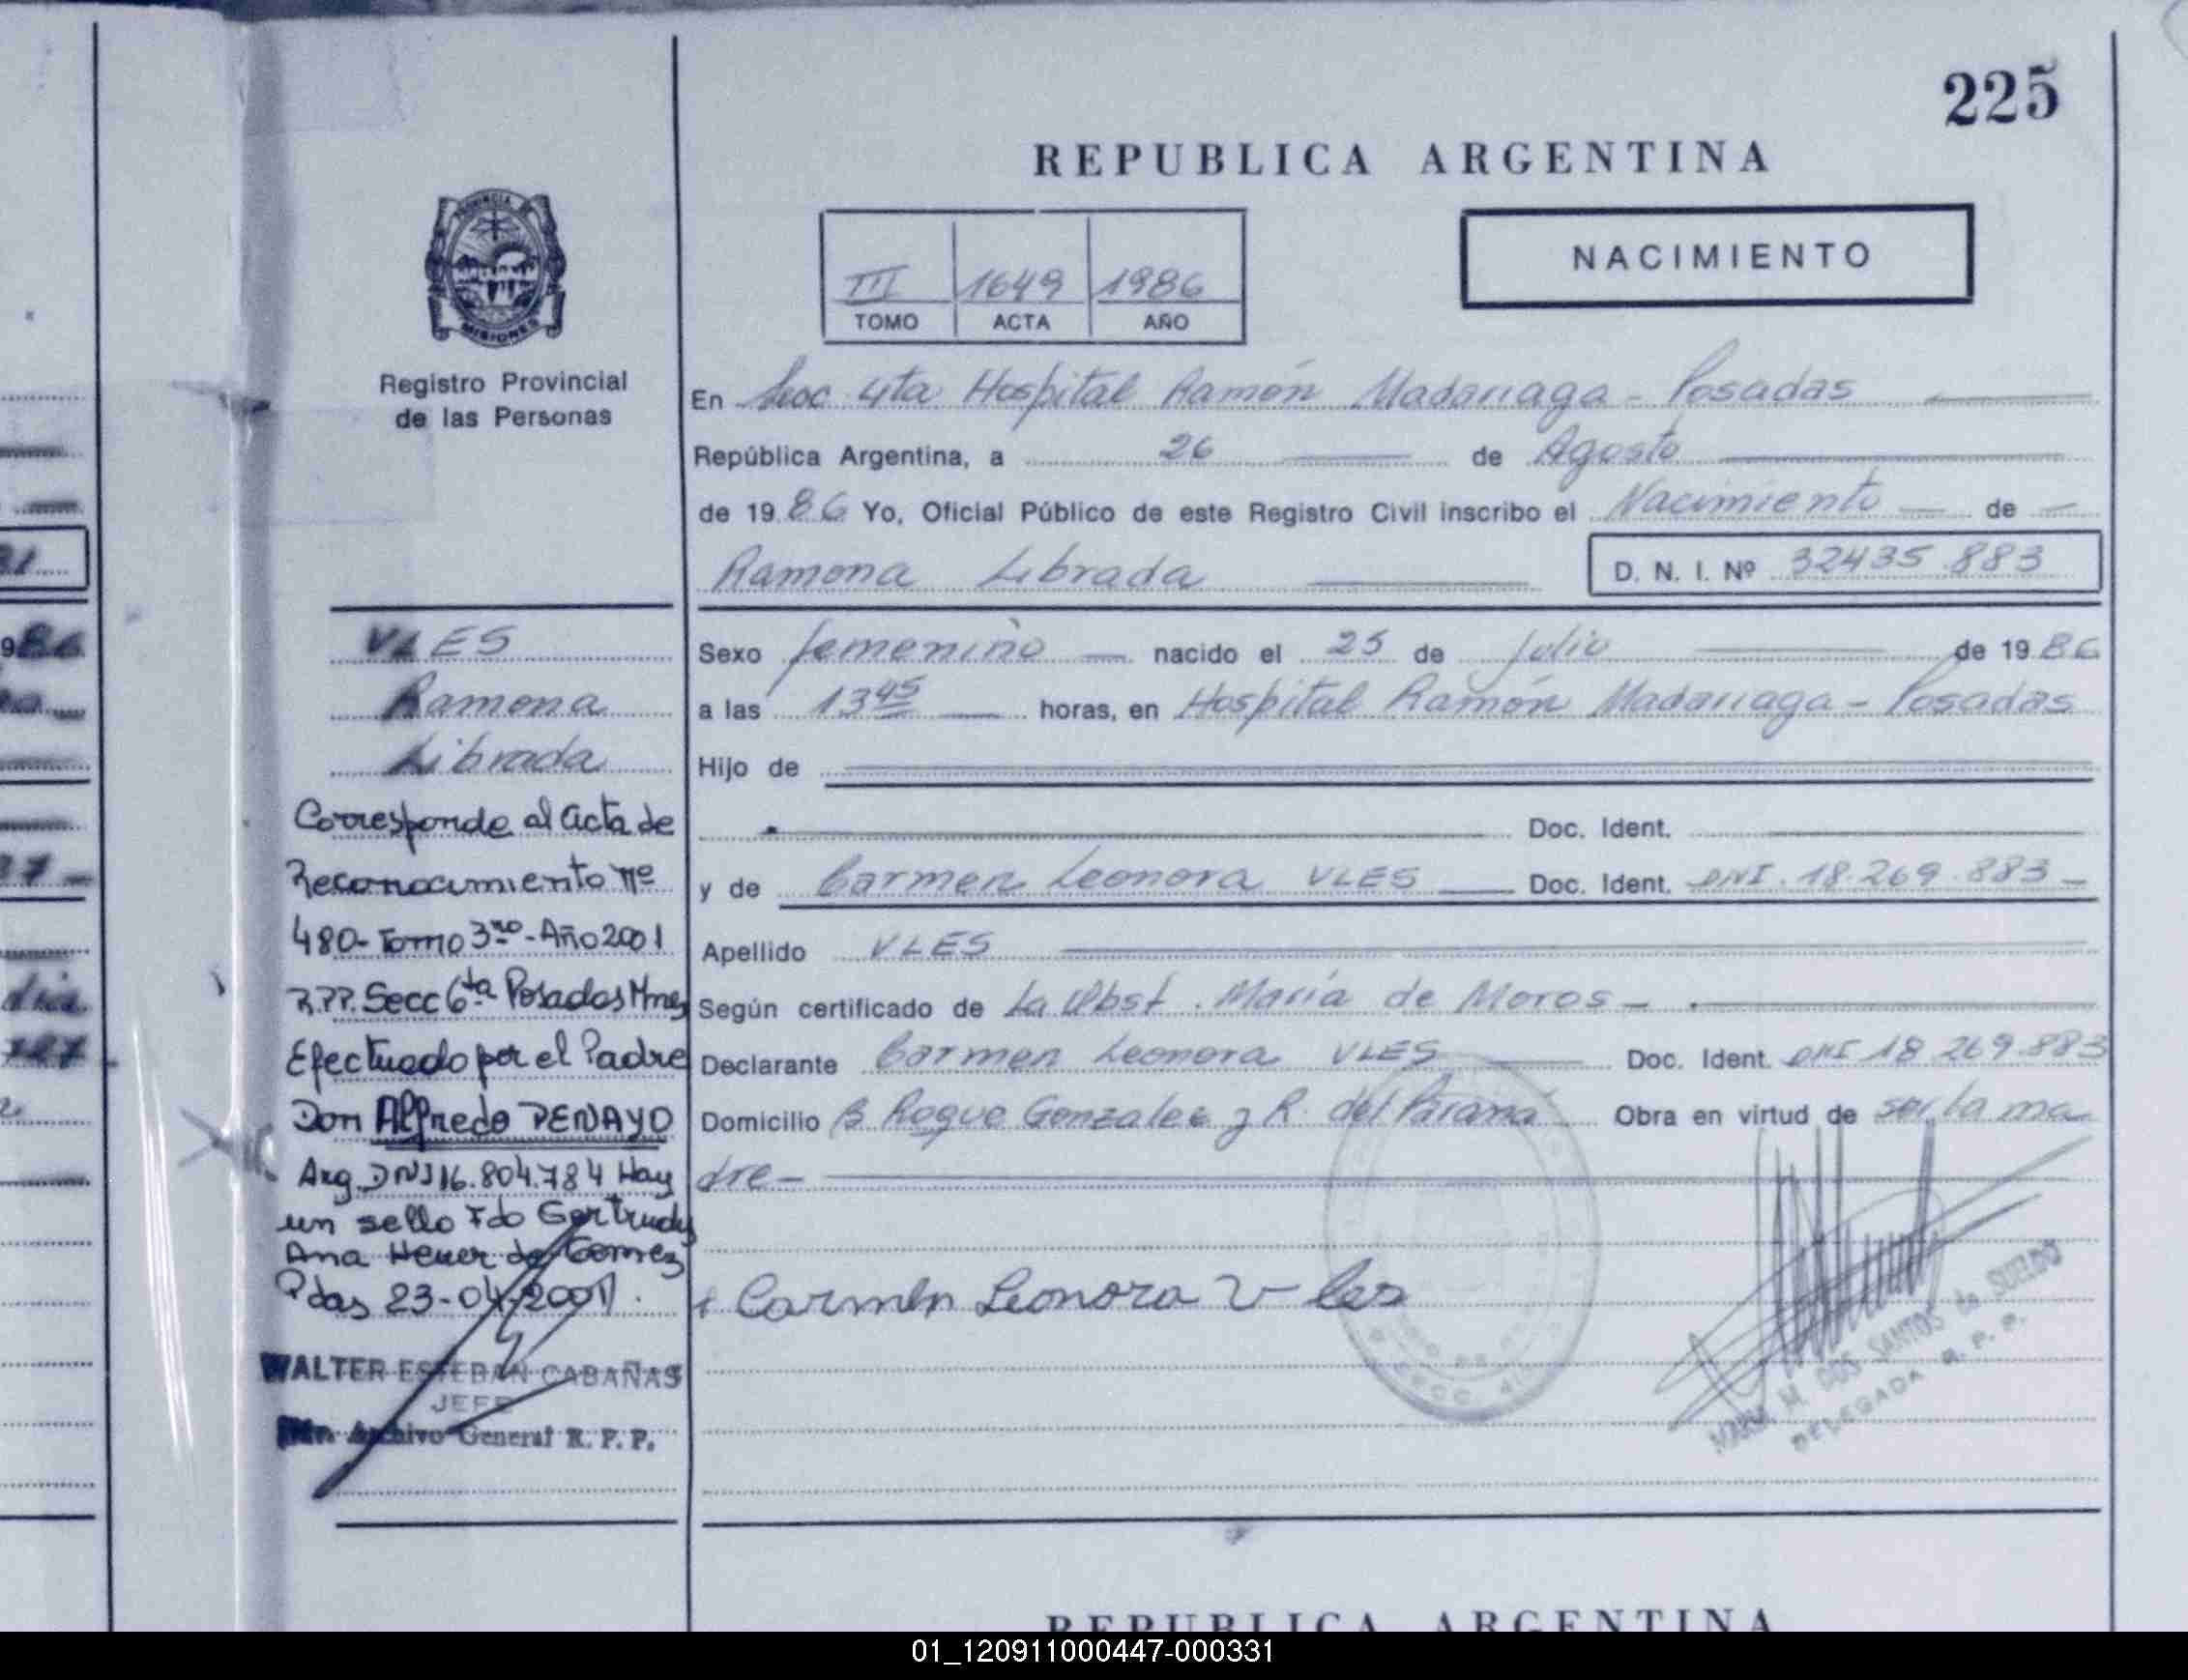 225
REPUBLICA ARGENTINA
PROVINCIA DE
MISIONES
Registro Provincial
de las Personas
III 1649 1986
TOMO ACTA AÑO
NACIMIENTO
En Secc 4ta Hospital Ramón Madariaga - Posadas
República Argentina, a 26 de Agosto
de 1986 Yo, Oficial Público de este Registro Civil inscribo el Nacimiento de
Ramona Librada D. N. I. Nº 32435.883
VLES
Ramona
Librada
Corresponde al Acta de
Reconocimiento Nº
480- Tomo 3ro - Año 2001
R.P.P. Secc 6ta Posadas Mnes
Efectuado por el Padre
Don Alfredo PENAYO
Arg. DNI 16.804.784 Hay
un sello Fdo Gertrudys
Ana Heuer de Gomez
Pdas 23-04-2001.
WALTER ESTEBAN CABAÑAS
JEFE
Archivo General R. P. P.
Sexo femenino nacido el 25 de Julio de 1986
a las 13 45 horas, en Hospital Ramón Madariaga - Posadas
Hijo de
Doc. Ident.
y de Carmen Leonora VLES Doc. Ident. DNI. 18.269.883 -
Apellido VLES
Según certificado de La Obst. María de Moros -
Declarante Carmen Leonora VLES Doc. Ident. DNI 18 269.883
Domicilio B Roque Gonzalez y R. del Paraná Obra en virtud de ser la ma
dre -
Carmen Leonora V les
MARIA M. DOS SANTOS de SUELDO
DELEGADA R. P. P.
REPUBLICA ARGENTINA
01_120911000447-000331